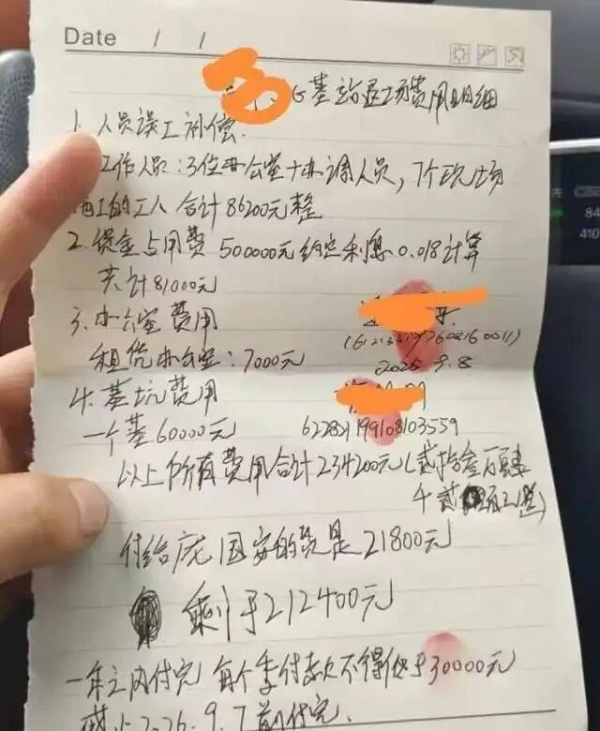 Date / /
G基站退场费用明细
1、人员误工补偿.
工作人员:3位办公室+协调人员,7个现场
施工的工人 合计86200元整
2、资金占用费 500000元约定利息0.018计算
共计81000元
3、办公室费用
租凭办公室:7000元
2025.9.8
4、基坑费用
一个基60000元
以上所有费用合计234200元(贰拾叁万肆
仟贰佰元整)
付给庞国安的钱是21800元
剩于212400元
一年之内付完 每个季付款不得低于30000元
截止2026.9.7前付完.
84
410